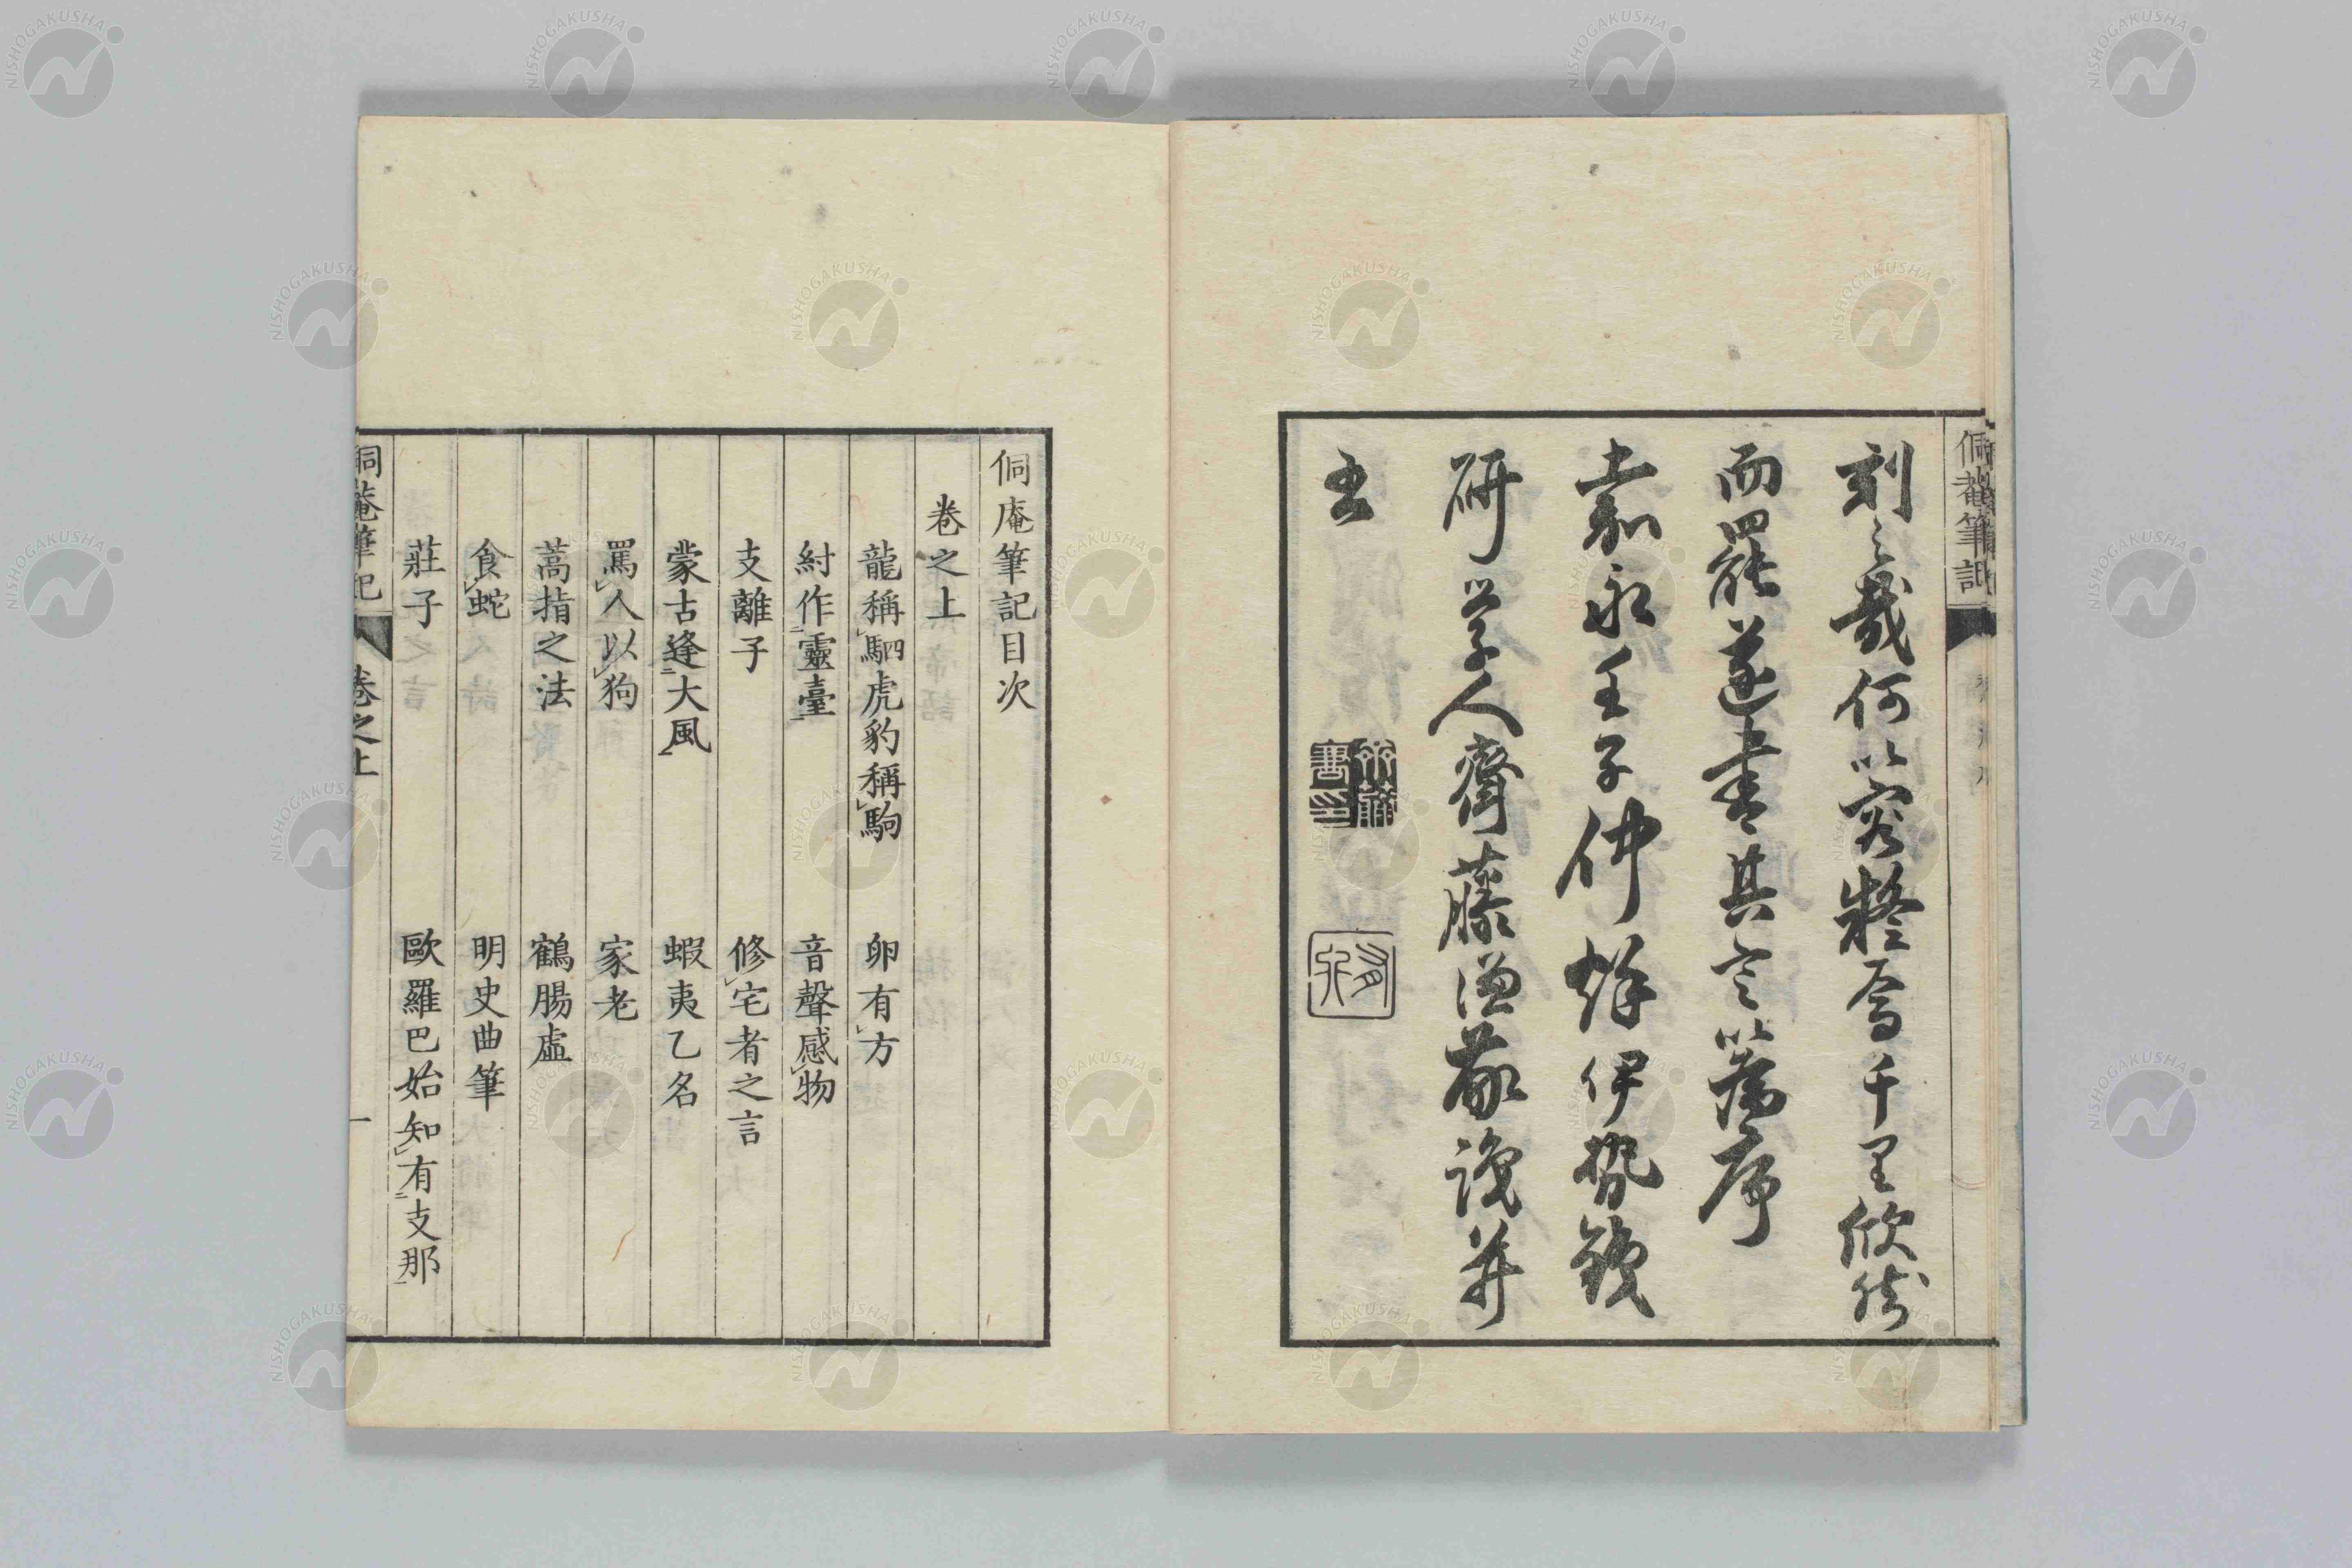 侗菴筆記
刻之哉何以容疑焉千里欣然
而罷遂書其言以爲序
嘉永壬子仲秌伊勢鐵
研学人齋藤謙敬譔并
書
侗庵筆記目次
卷之上
龍稱駟虎豹稱駒 卵有方
紂作靈臺 音聲感物
支離子 修宅者之言
蒙古逢大風 蝦夷乙名
罵人以狗 家老
蒿指之法 鶴腸虛
食蛇 明史曲筆
莊子 歐羅巴始知有支那
侗菴筆記 卷之上 一
NISHOGAKUSHA